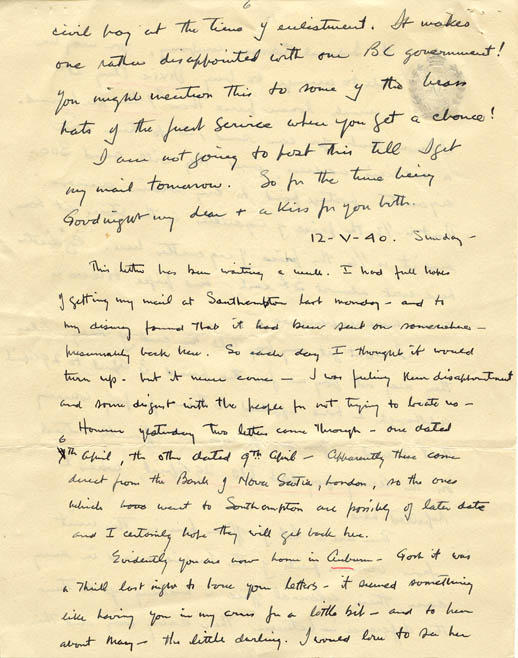 6
civil pay at the time of enlistment. It makes
one rather disappointed with our BC government!
You might mention this to some of the brass
hats of the Forest Service when you get a chance!
I am not going to post this till I get
my mail tomorrow. So for the time being
Goodnight my dear + a kiss for you both.
12-V-40. Sunday -
This letter has been waiting a week. I had full hopes
of getting my mail at Southampton last monday - and to
my dismay found that it had been sent on somewhere -
presumably back here. So each day I thought it would
turn up - but it never came - I was feeling keen disappointment
and some disgust with the people for not trying to locate us -
However yesterday two letters came through - one dated
6th April, the other dated 9th April - Apparently these came
direct from the Bank of Nova Scotia, London, so the ones
which went to Southampton are possibly of later date
and I certainly hope they will get back here.
Evidently you are now home in - Gosh it was
a thrill last night to have your letters - it seemed something
like having you in my arms for a little bit - and to hear
about Mary - the little darling. I would love to see her